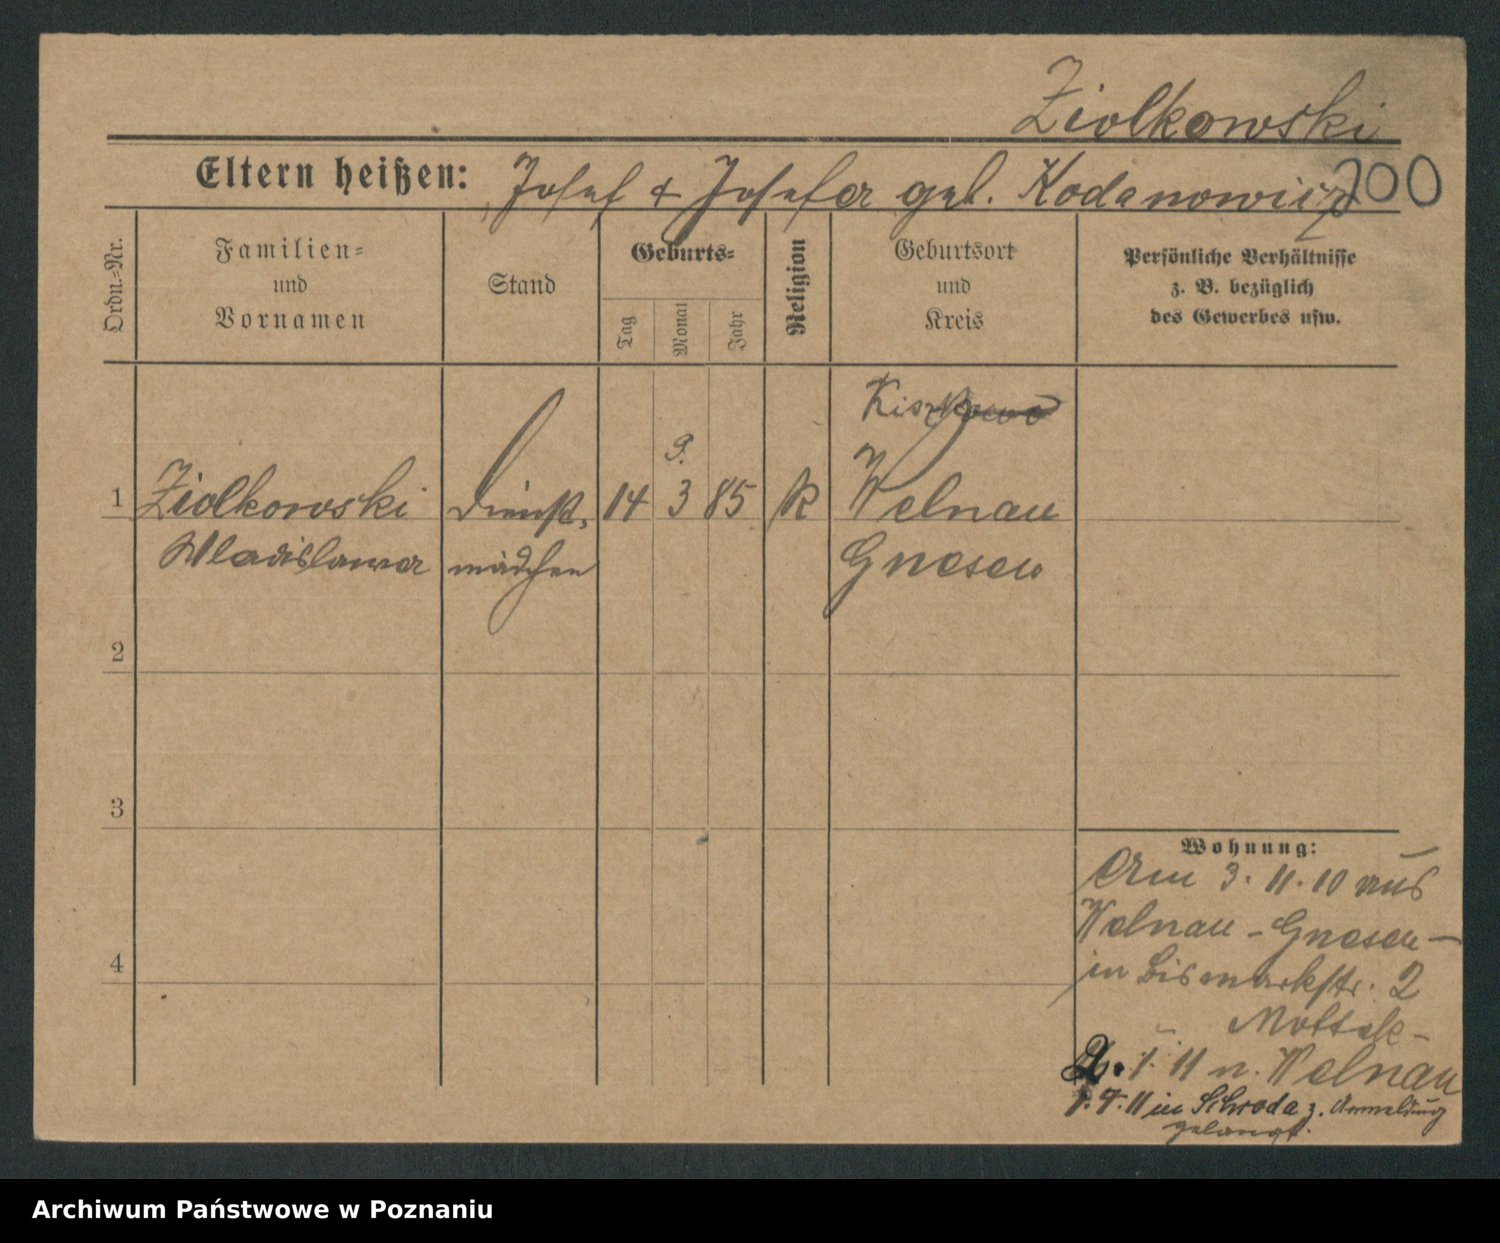 Ziolkowski
Eltern heißen: Josef & Josefa geb. Kodanowicz
200
Ordn.-Nr.
Familien-
und
Vornamen
Stand
Geburts-
Tag
Monat
Jahr
Religion
Geburtsort
und
Kreis
Persönliche Verhältnisse
z. B. bezüglich
des Gewerbes usw.
Kiszkowo
9.
1 Ziolkowski Dienst- 14 3 85 K Welnau
Wladislawa mädchen Gnesen
2
3
4
Wohnung:
Am 3. 11. 10 aus
Welnau - Gnesen -
in Bismarkstr. 2
2. 1. 11 n. Welnau
1. 4. 11 in Schroda z. Anmeldung
gelangt.
Archiwum Państwowe w Poznaniu